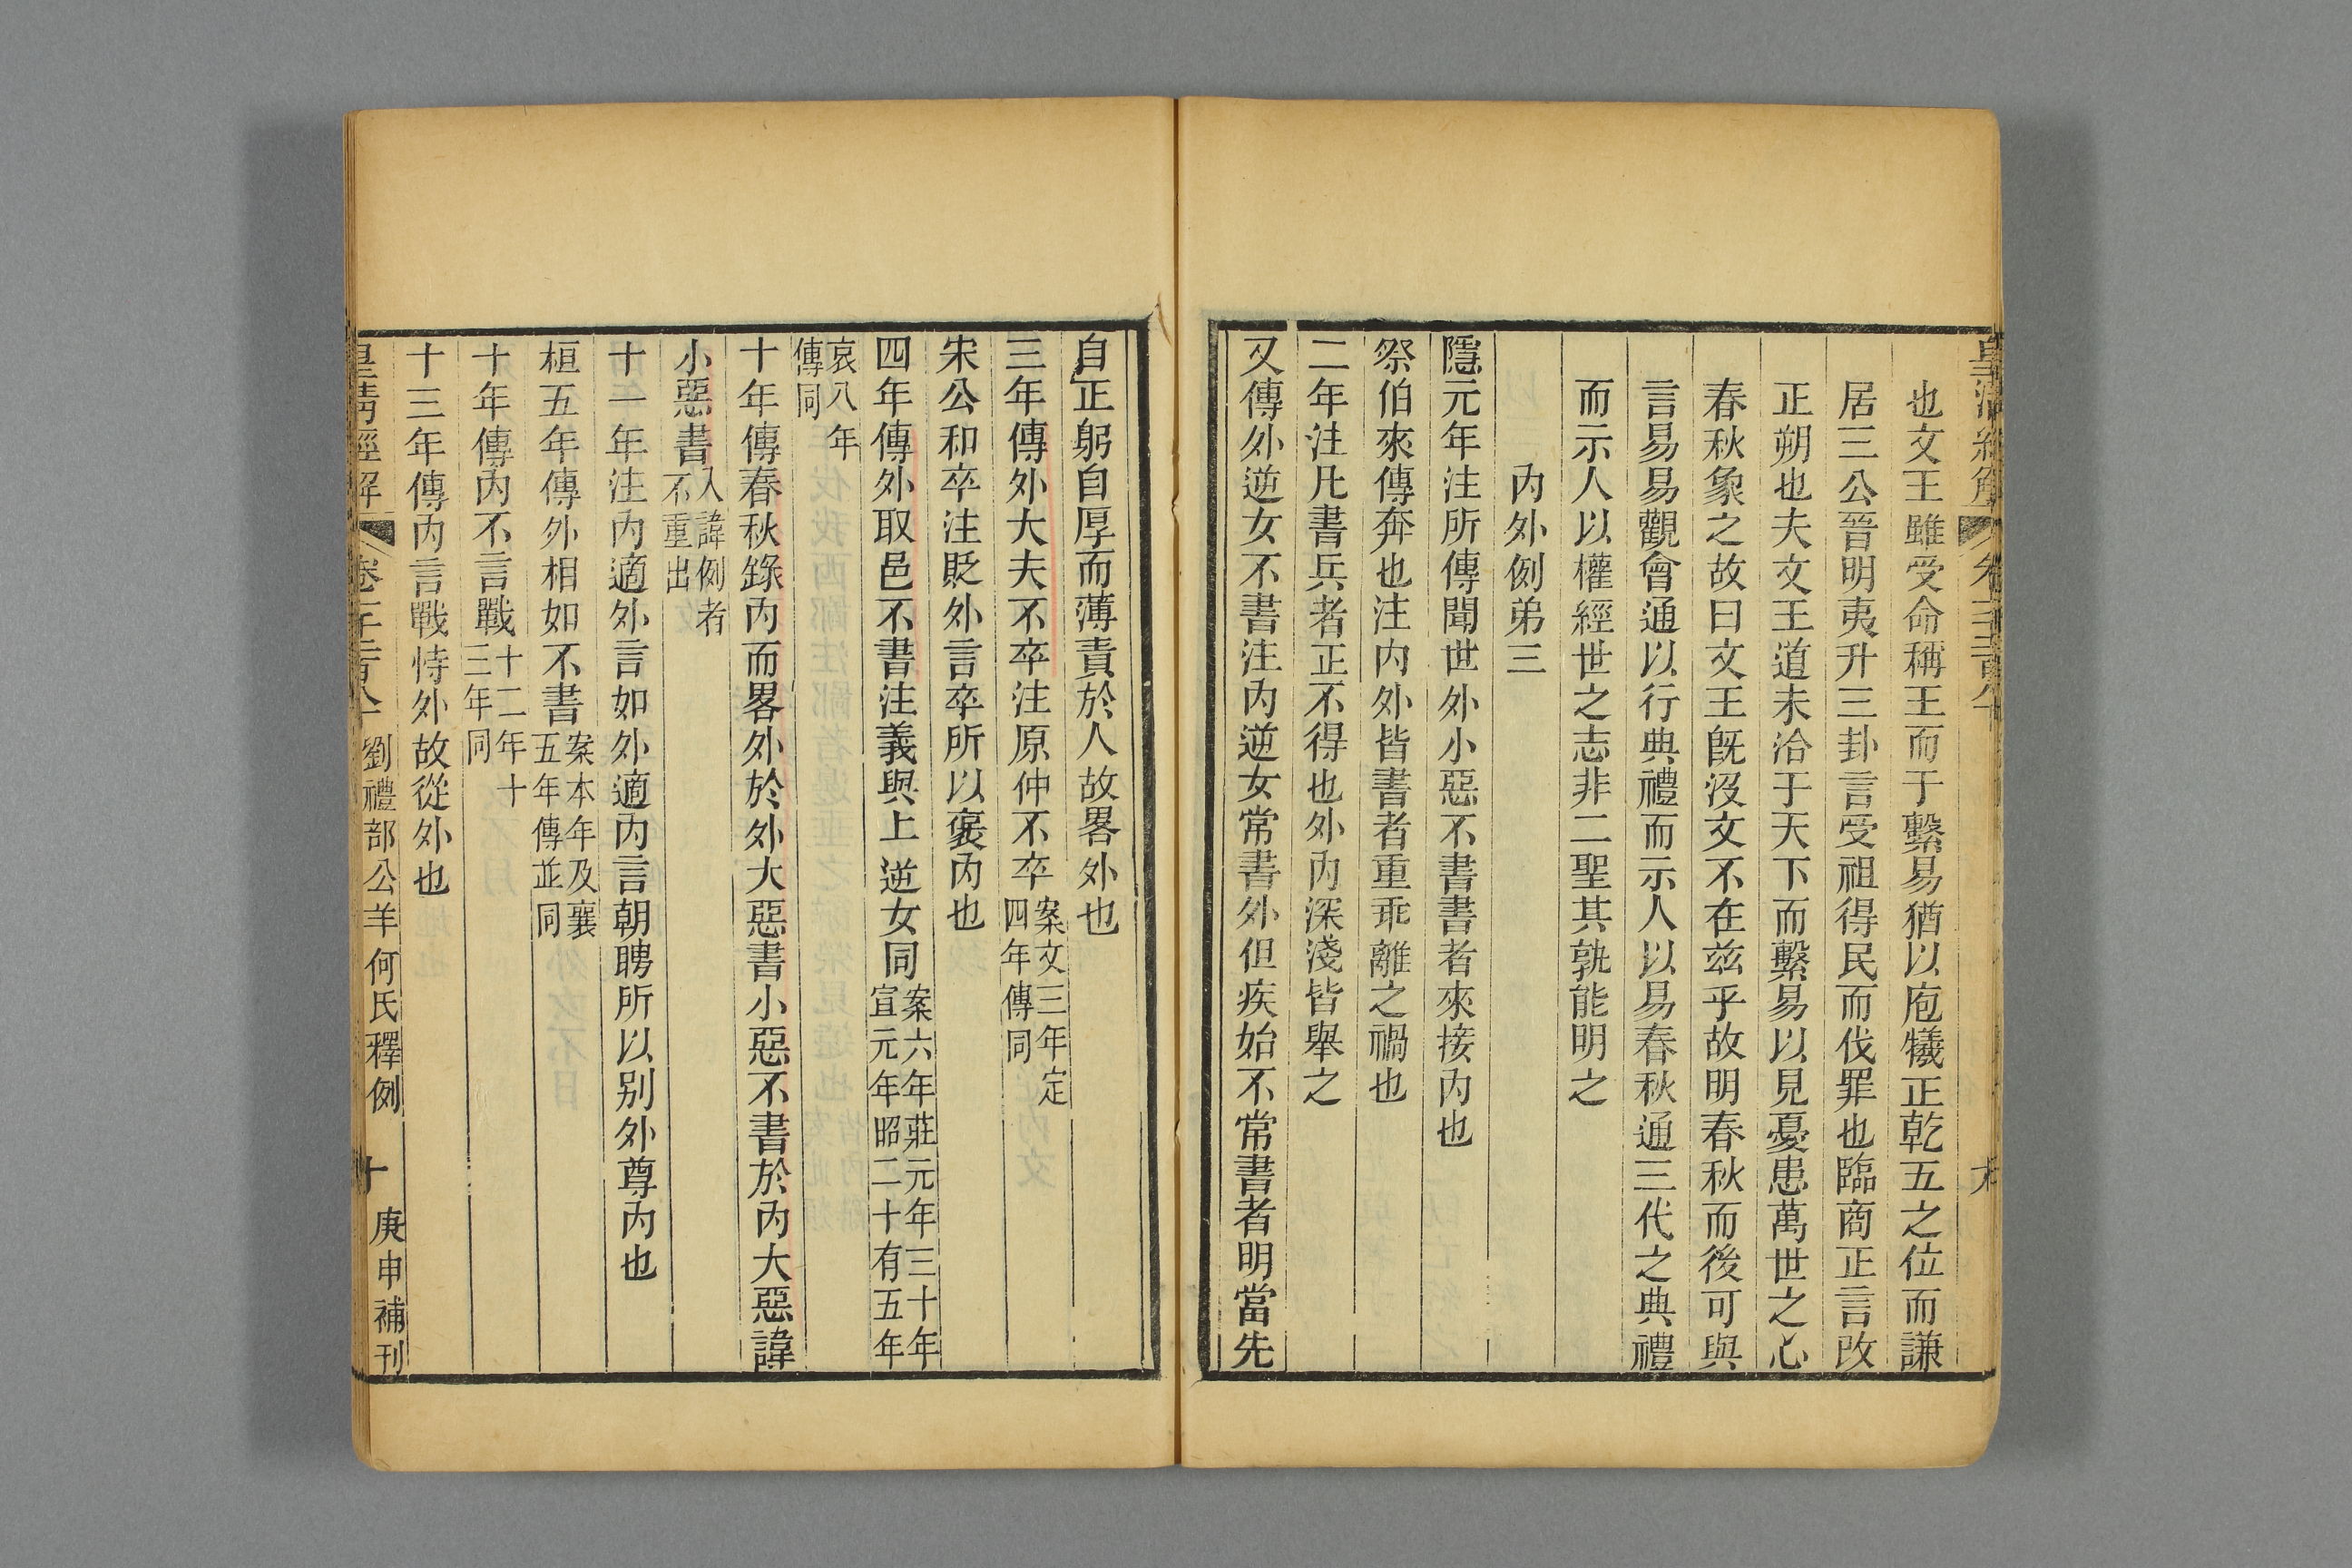 也文王雖受命稱王而于繫易猶以庖犧正乾五之位而謙
居三公晉明夷升三卦言受祖得民而伐罪也臨商正言改
正朔也夫文王道未洽于天下而繫易以見憂患萬世之心
春秋象之故曰文王旣沒文不在兹乎故明春秋而後可與
言易易觀會通以行典禮而示人以易春秋通三代之典禮
而示人以權經世之志非二聖其孰能明之
內外例弟三
隱元年注所傳聞世外小惡不書書者來接內也
祭伯來傳奔也注內外皆書者重乖離之禍也
二年注凡書兵者正不得也外內深淺皆舉之
又傳外逆女不書注內逆女常書外但疾始不常書者明當先
自正躬自厚而薄責於人故畧外也
三年傳外大夫不卒注原仲不卒案文三年定四年傳同
宋公和卒注貶外言卒所以襃內也
四年傳外取邑不書注義與上逆女同案六年莊元年三十年宣元年昭二十有五年
哀八年傳同
十年傳春秋錄內而畧外於外大惡書小惡不書於內大惡諱
小惡書入諱例者不重出
十一年注內適外言如外適內言朝聘所以別外尊內也
桓五年傳外相如不書案本年及襄五年傳並同
十年傳內不言戰十二年十三年同
十三年傳內言戰恃外故從外也
皇淸經解 卷 劉禮部公羊何氏釋例 十 庚申補刊